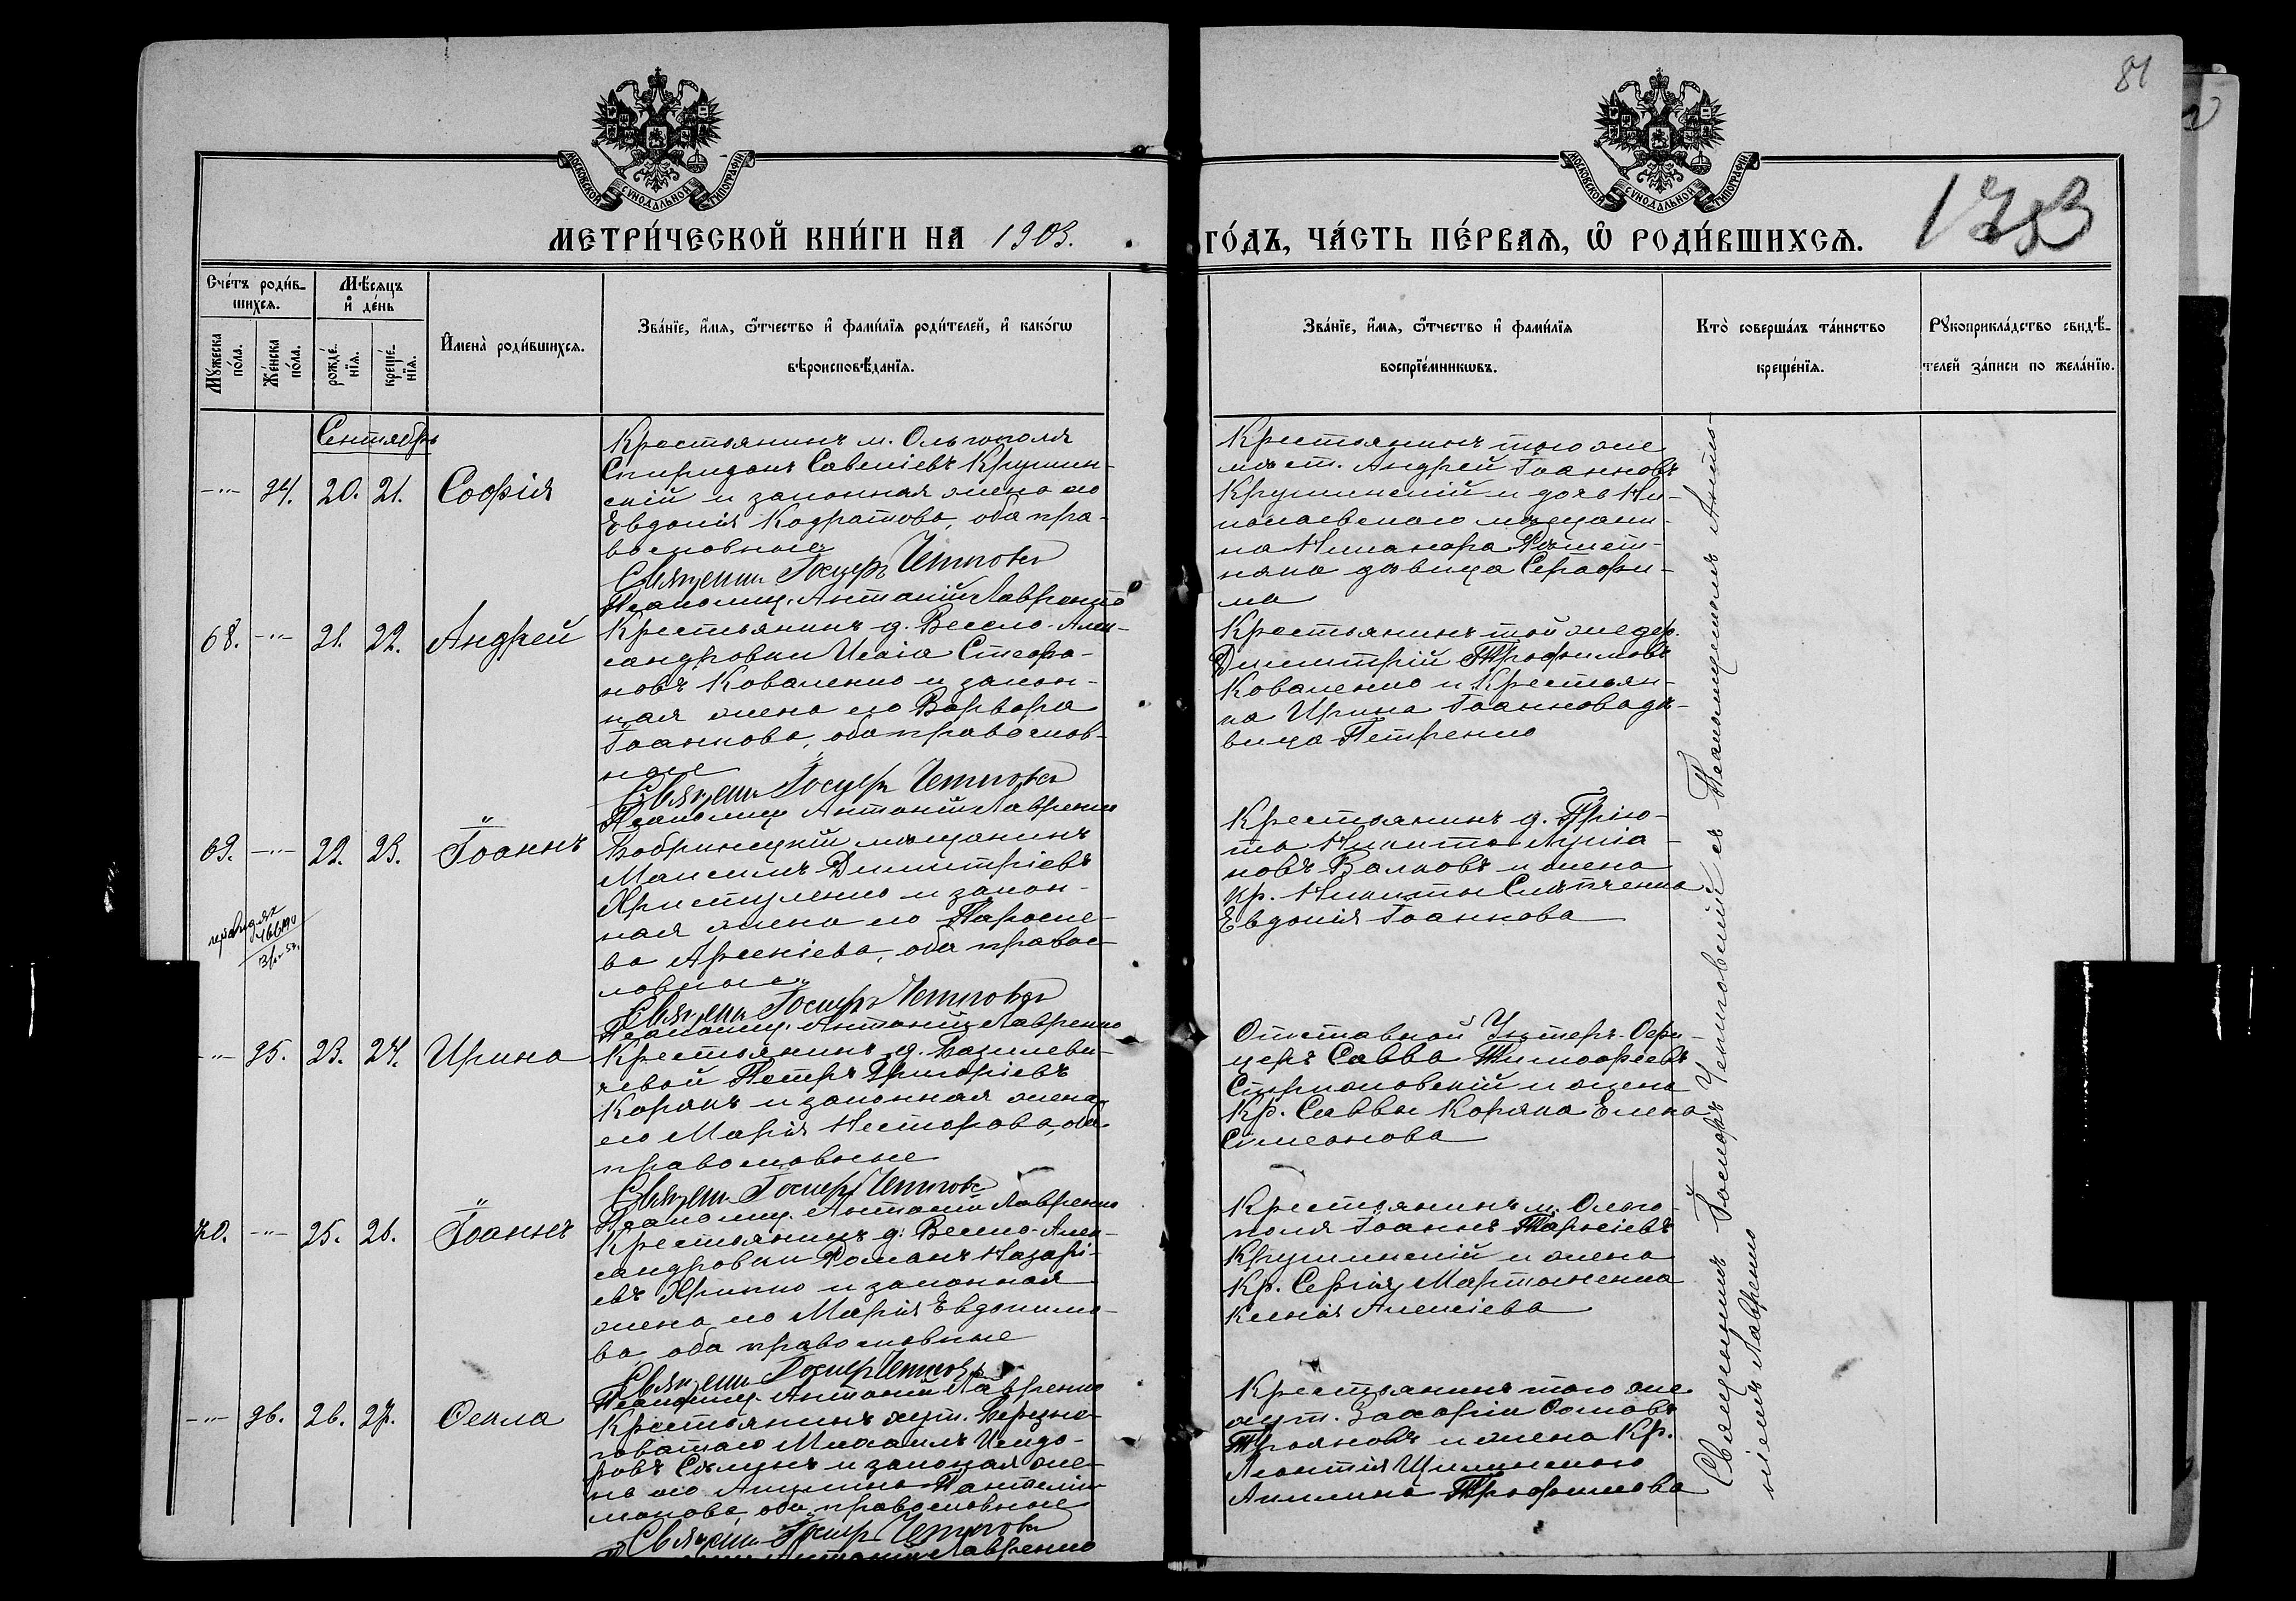 81
МОСКОВСКОЙ СѴНОДАЛЬНОЙ ТИПОГРАФІИ
МОСКОВСКОЙ СѴНОДАЛЬНОЙ ТИПОГРАФІИ
МЕТРИ́ЧЕСКОЙ КНИ́ГИ НА 1903.
ГО́ДЪ, ЧА́СТЬ ПЕ́РВАѦ, Ѽ РОДИ́ВШИХСѦ.
Сче́тъ роди́в-
шихсѧ.
Мѣ́сяцъ
и҆ де́нь
Мꙋ́жеска по́ла.
Же́нска по́ла.
рожде́-
нїѧ.
креще́-
нїѧ.
И҆мена̀ роди́вшихсѧ.
Зва́нїе, и҆́мѧ, ѻ҆́тчество и҆ фами́лїѧ роди́телей, и҆ како́гѡ
вѣроисповѣ́данїѧ.
Зва́нїе, и҆́мѧ, ѻ҆́тчество и҆ фами́лїѧ
воспрїе́мникѡвъ.
Кто̀ соверша́лъ та́инство
креще́нїѧ.
Рꙋкоприкла́дство свидѣ́-
телей за́писи по жела́нїю.
Сентябрь
-"- 34. 20. 21. Софія
Крестьянинъ м. Ольгополя
Спиридонъ Савеліевъ Крушин-
скій и законная жена его
Евдокія Кодратова, оба пра-
вославные
Священ. Іосифъ Чепиговс
Псаломщ. Антоній Лавренко
Крестьянинъ того же
мѣст. Андрей Іоанновъ
Крушинскій и дочь Ни-
колаевскаго мѣщани-
на Никанора
дѣвица Серафи-
ма
68. -"- 21. 22. Андрей
Крестьянинъ д. Весело-Алек-
сандровки Исаія Стефа-
новъ Коваленко и закон-
ная жена его Варвара
Іоаннова, оба православ-
ные
Священ. Іосифъ Чепиговс
Псаломщ. Антоній Лавренко
Крестьянинъ той же дер.
Димитрій Трофимовъ
Коваленко и Крестьян-
ка Ирина Іоаннова дѣ-
вица Петренко
69. -"- 22. 23. Іоаннъ
Бобринецкій мѣщанинъ
Максимъ Димитріевъ
Христуленко и закон-
ная жена его Параске-
ва Арсеніева, оба правос-
лавные
Священ. Іосифъ Чепиговс
Псаломщ. Антоній Лавренко
Крестьянинъ д. Прію-
та Никита Лукіа-
новъ Валковъ и жена
кр. Никиты Слѣпченка
Евдокія Іоаннова
-"- 35. 23. 24. Ирина
Крестьянинъ д. Базилеви-
чевой Петръ Григоріевъ
Корякъ и законная жена
его Марія Несторова, оба
православные
Священ. Іосифъ Чепиговс
Псаломщ. Антоній Лавренко
Отставной Унтеръ-Офи-
церъ Савва Тимофеевъ
и жена
Кр. Саввы Коряка Елена
Симеонова
70. -"- 25. 26. Іоаннъ
Крестьянинъ д. Весело-Алек-
сандровки Романъ Назарі-
евъ Хрипко и законная
жена его Марія Евдокимо-
ва, оба православные
Священ. Іосифъ Чепиговс
Псаломщ. Антоній Лавренко
Крестьянинъ м. Ольго-
поля Іоаннъ Тарасіевъ
Крушинскій и жена
Кр. Сергія Мартыненка
Ксенія Алексіева
-"- 36. 26. 27. Ѳекла
Крестьянинъ хут. Березно-
говатаго Михаилъ Исидо-
ровъ и законая же-
на его Акилина Пантелеи-
монова, оба православные
Священ. Іосифъ Чепиговс
Антоній Лавренко
Крестьянинъ того же
хут. Захарія Ѳомовъ
Трояновъ и жена Кр.
Леонтія
Акилина Трофимова
Священникъ Іосифъ Чепиговскій съ Псаломщикомъ Анто-
ніемъ Лавренко